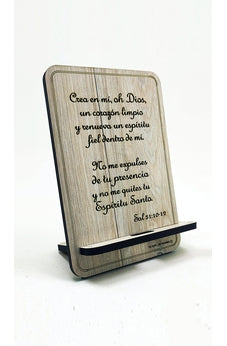 Crea en mi, oh Dios,
un corazón limpio
y renueva un espíritu
fiel dentro de mi.
No me expulses
de tu presencia
y no me quites tu
Espíritu Santo.
Sal 51:10-12